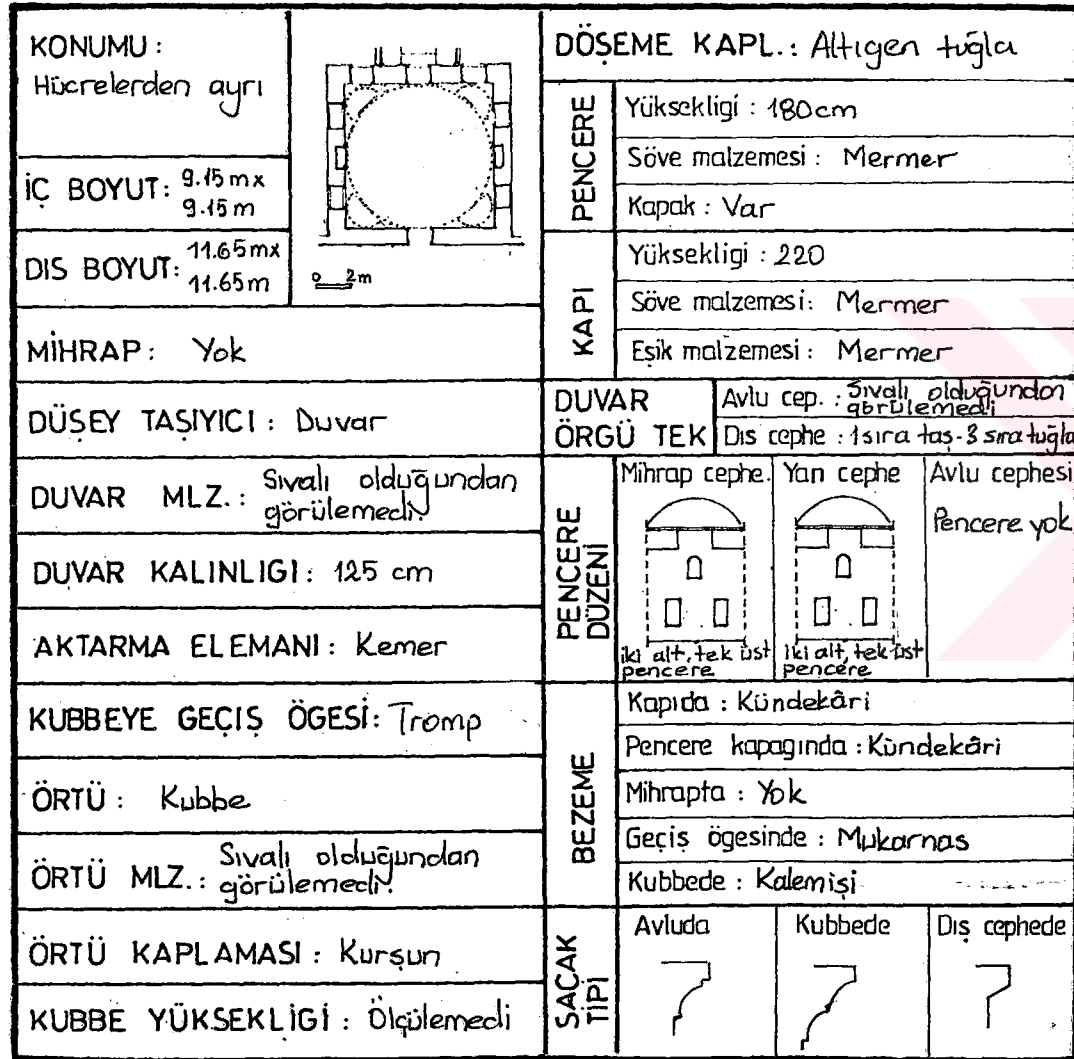 KONUMU :
Hücrelerden ayrı
0 2m
İÇ BOYUT: 9.15 m x
9.15 m
DIS BOYUT: 11.65 mx
11.65 m
MİHRAP: Yok
DÜŞEY TAŞIYICI : Duvar
DUVAR MLZ.: Sıvalı olduğundan
görülemedi.
DUVAR KALINLIGI: 125 cm
AKTARMA ELEMANI : Kemer
KUBBEYE GEÇIŞ ÖGESİ: Tromp
ÖRTÜ : Kubbe
ÖRTÜ MLZ.: Sıvalı olduğundan
görülemedi.
ÖRTÜ KAPLAMASI : Kurşun
KUBBE YÜKSEKLİGİ : Ölçülemedi
DÖŞEME KAPL.: Altıgen tuğla
PENCERE
Yüksekligi : 180cm
Söve malzemesi : Mermer
Kapak : Var
KAPI
Yüksekligi : 220
Söve malzemesi: Mermer
Eşik malzemesi : Mermer
DUVAR
ÖRGÜ TEK
Avlu cep. : Sıvalı olduğundan
görülemedi
Dıs cephe : 1 sıra taş-3 sıra tuğla
PENCERE
DÜZENİ
Mihrap cephe.
iki alt, tek üst
pencere
Yan cephe
iki alt, tek üst
pencere
Avlu cephesi
Pencere yok
BEZEME
Kapıda : Kündekâri
Pencere kapagında : Kündekâri
Mihrapta : Yok
Geçiş ögesinde : Mukarnas
Kubbede : Kalemişi
SAÇAK
TİPİ
Avluda
Kubbede
Dış cephede